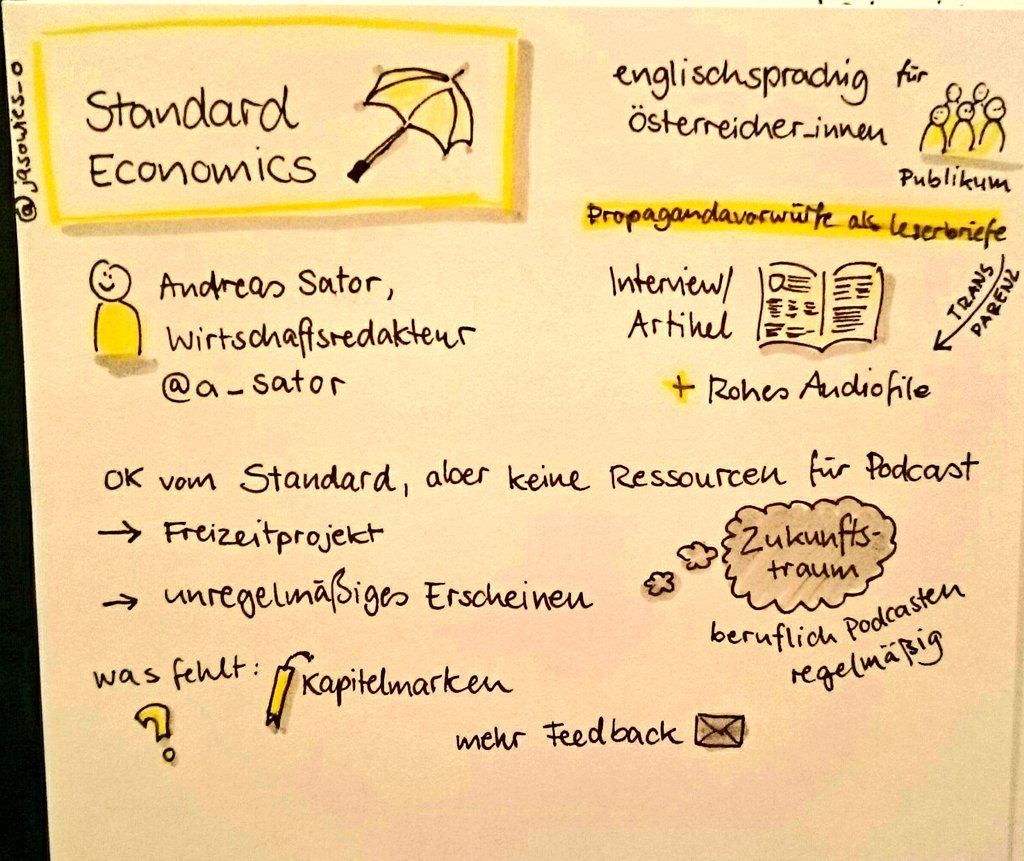 @jasowies_o
Standard
Economics
englischsprachig für
Österreicher_innen
Publikum
Propagandavorwürfe als Leserbriefe
Andreas Sator,
Wirtschaftsredakteur
@a_sator
Interview/
Artikel
TRANS
PARENZ
+ Rohes Audiofile
OK vom Standard, aber keine Ressourcen für Podcast
→ Freizeitprojekt
→ unregelmäßiges Erscheinen
Zukunfts-
traum
beruflich Podcasten
regelmäßig
was fehlt:
?
Kapitelmarken
mehr Feedback